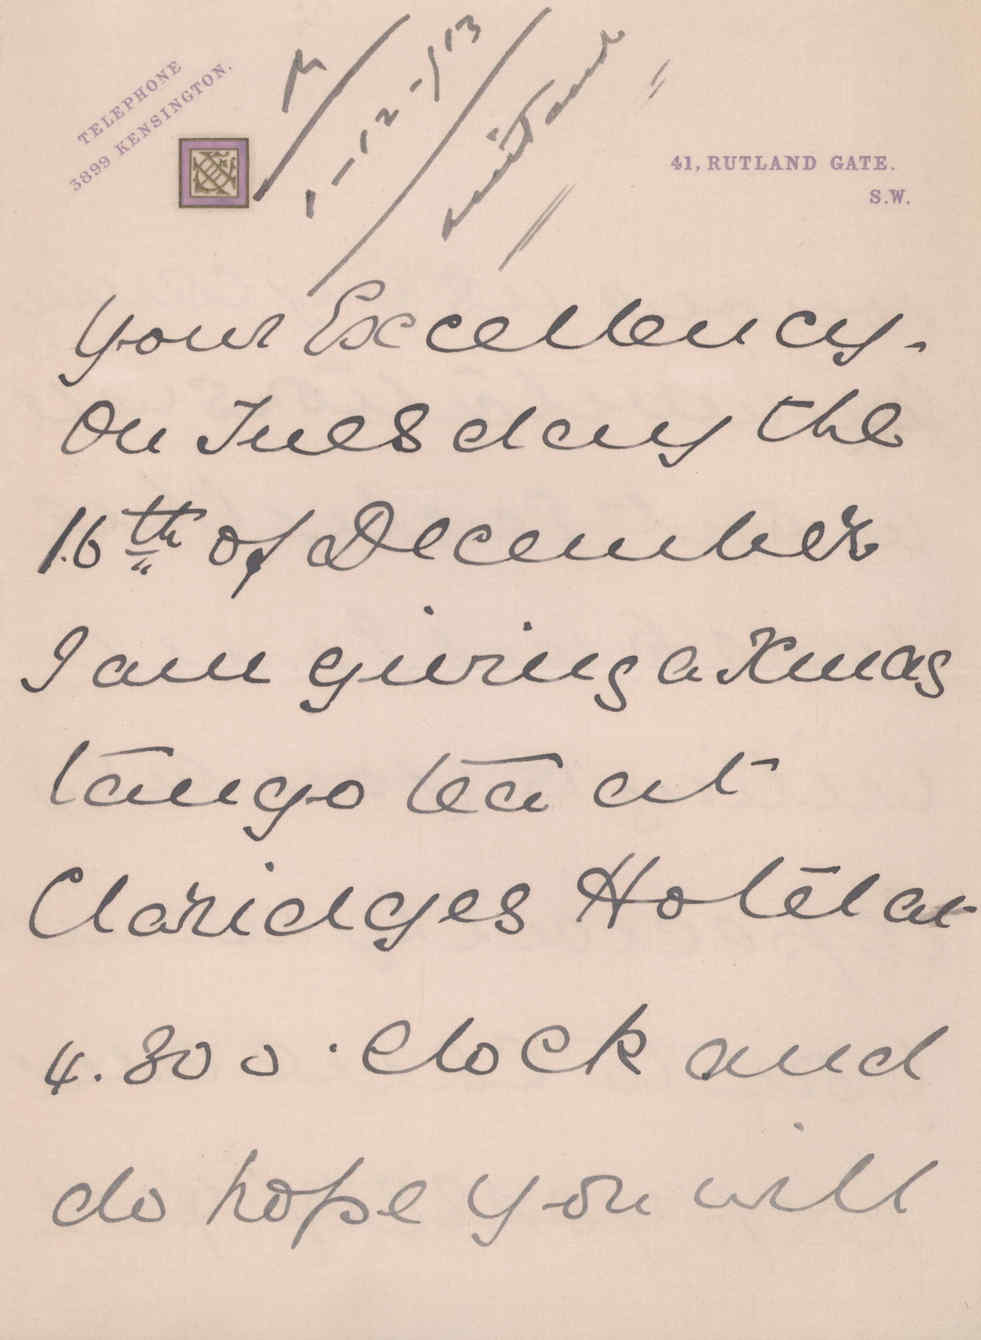 TELEPHONE
3899 KENSINGTON.
1-12-13
41, RUTLAND GATE.
S.W.
Your Excellency.
On Tuesday the
16th of December
I am giving a Xmas
tango tea at
Claridges Hotel at
4.30 o'clock and
do hope you will